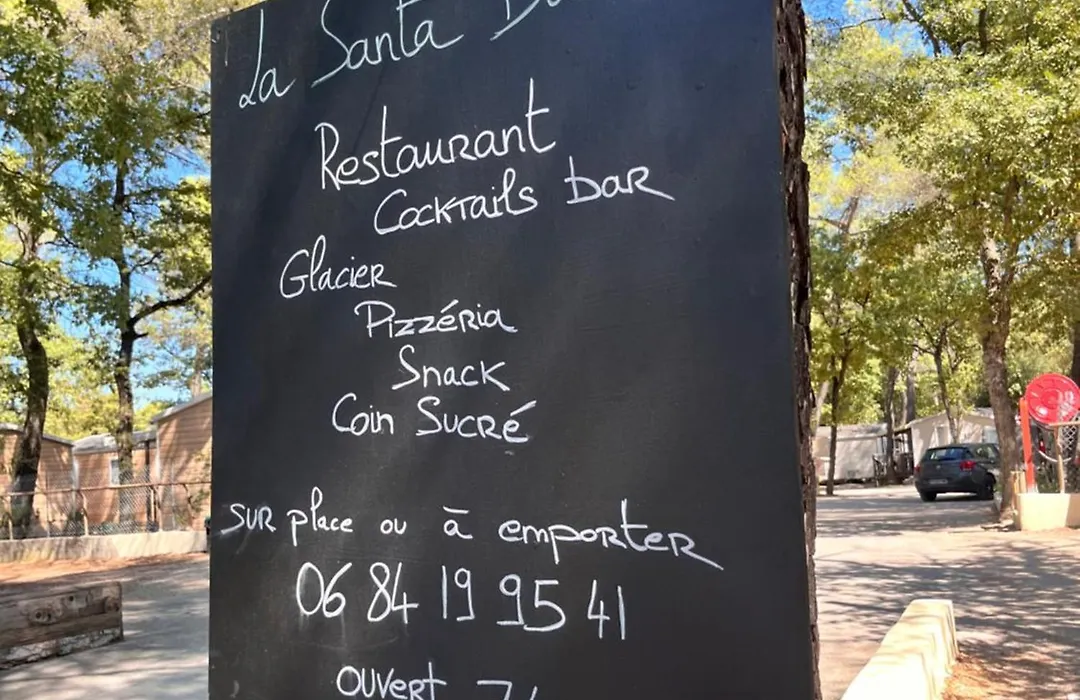 La Santa
Restaurant
Cocktails bar
Glacier
Pizzéria
Snack
Coin Sucré
sur place ou à emporter
06 84 19 95 41
ouvert